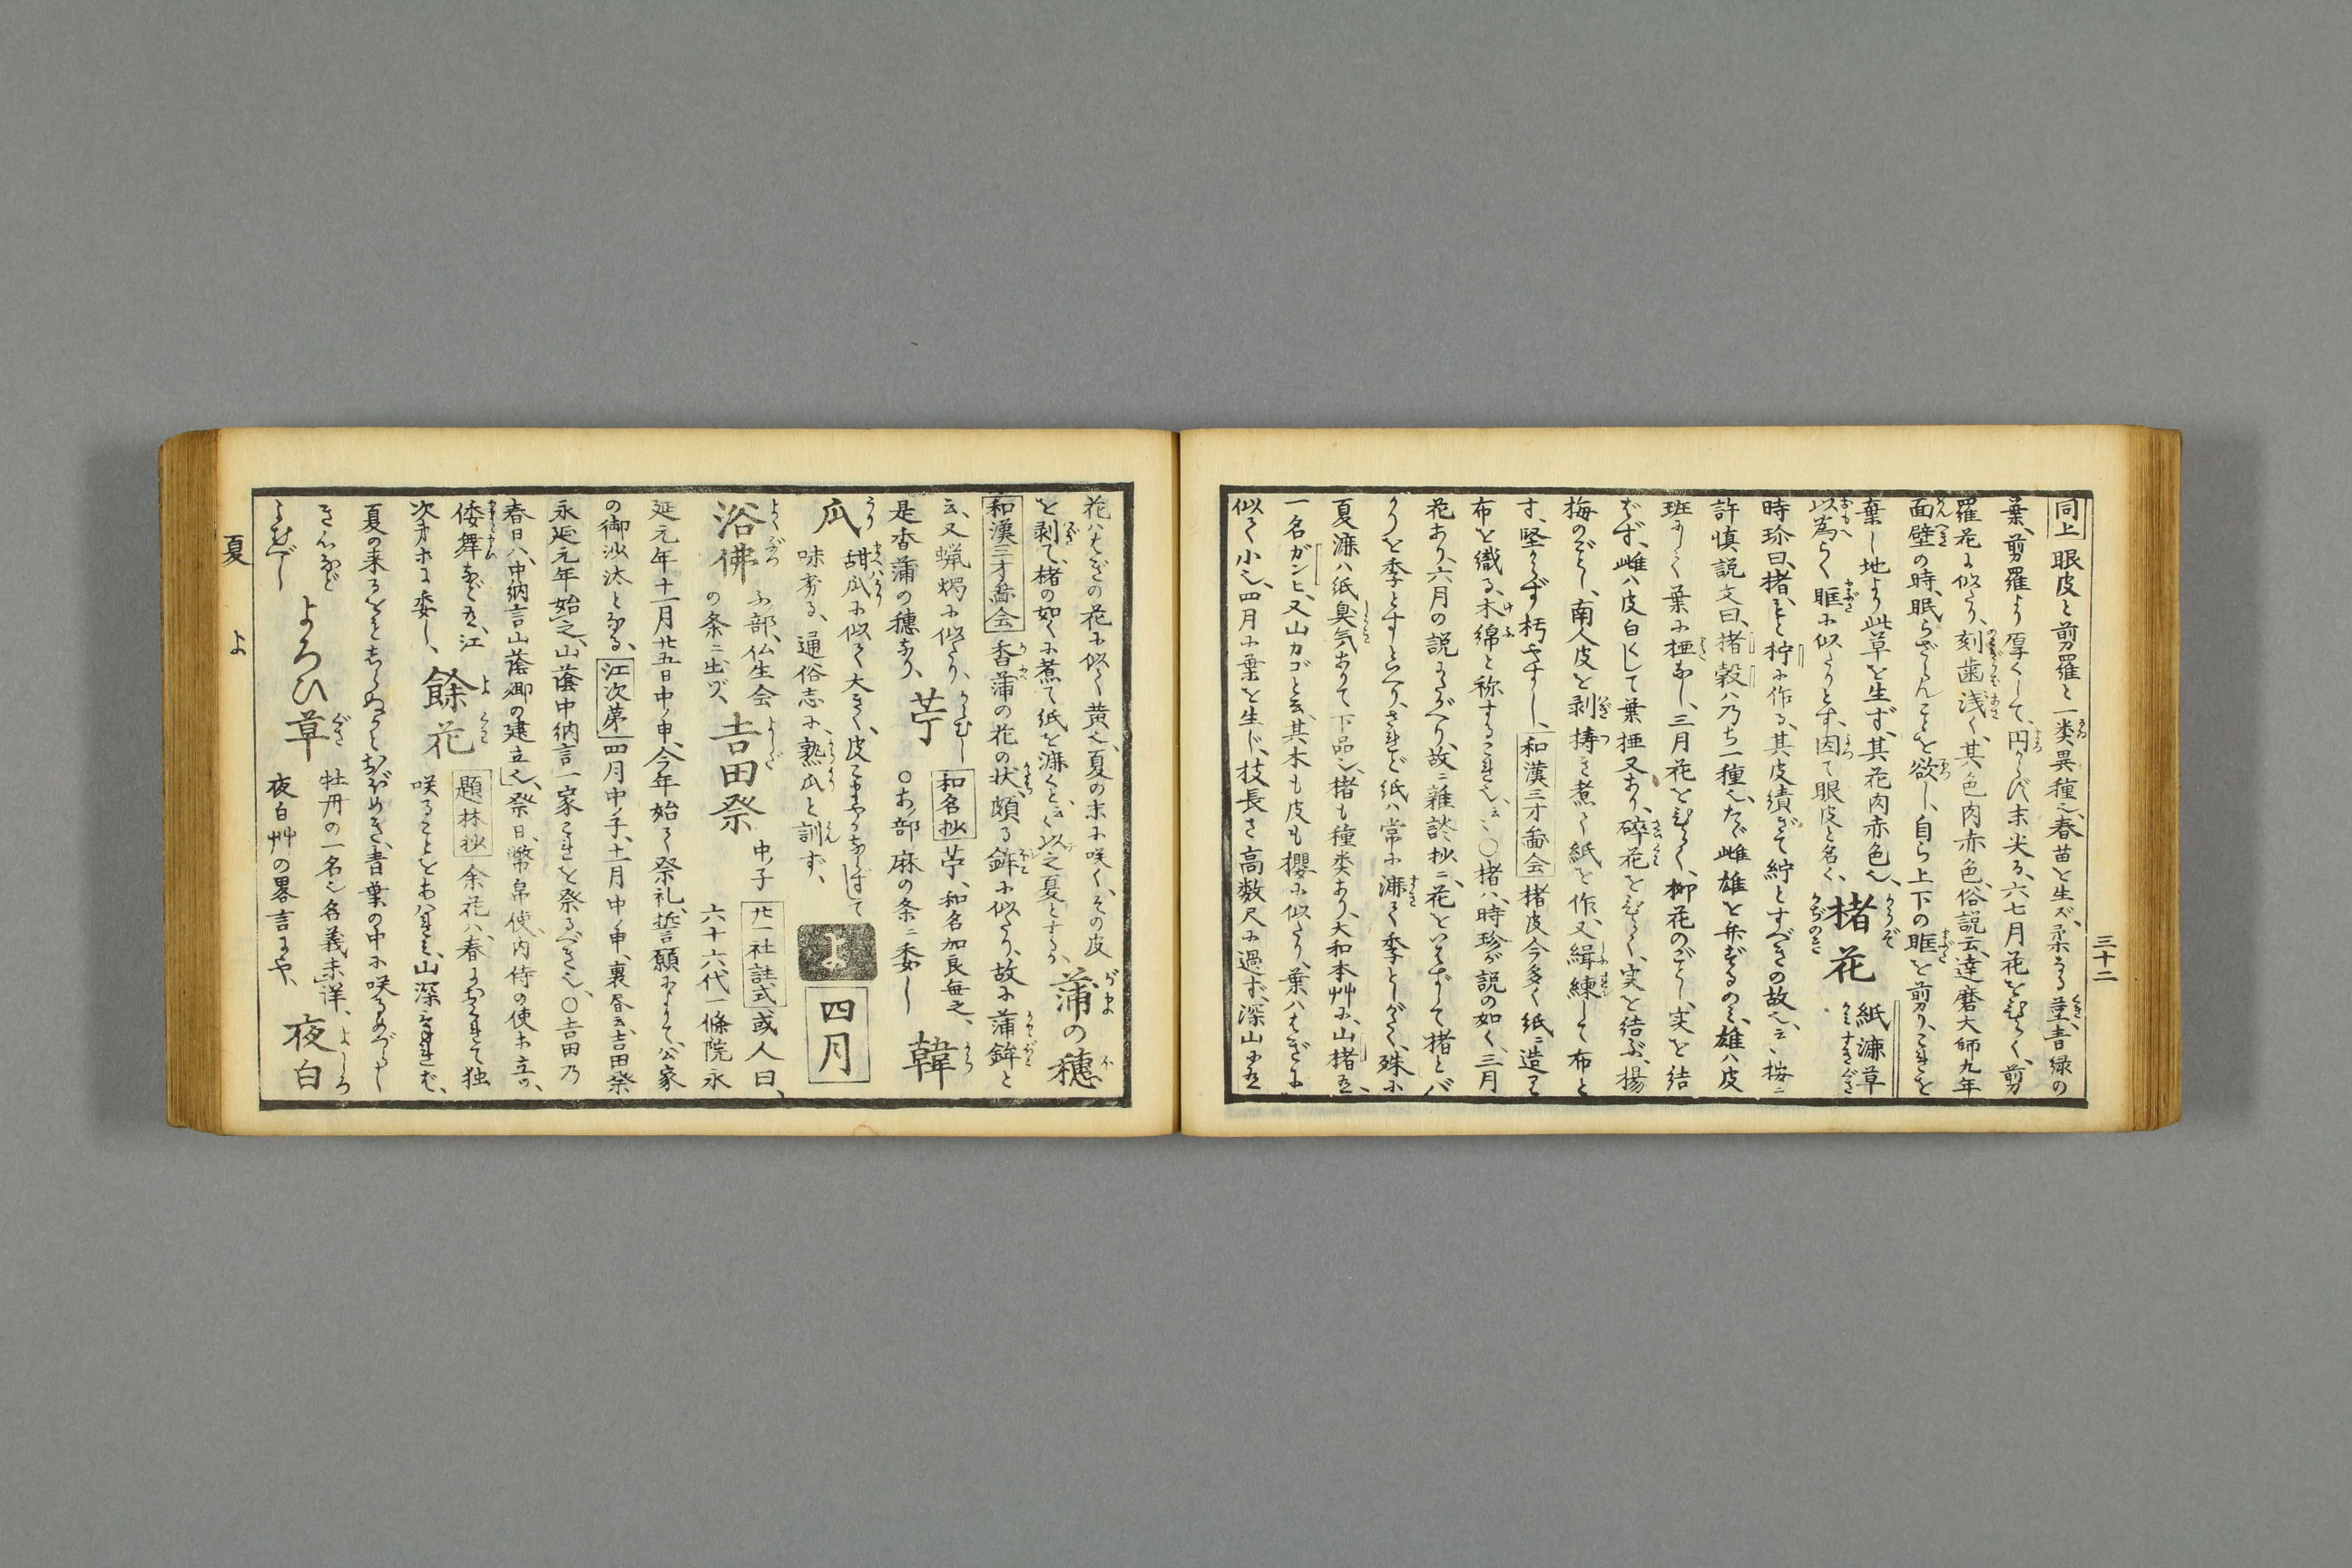 三十二
同上 眼皮と剪羅と一類異種也、春苗を生ズ、柔なる茎青緑の
葉、剪羅より厚くして、円からズ末尖る、六七月花をひらく、剪
羅花に似たり、刻歯浅く、其色肉赤色、俗説云、達磨大師九年
面壁の時、眠らざらんことを欲し、自ら上下の眶を剪り、これを
棄し地より此草を生ず、其花肉赤色也、
以為らく眶に似たりとす、因て眼皮と名く、
楮花 紙漉草
時珍曰、楮、もと柠に作る、其皮績ぎて紵とすべきの故也、云云、按ニ
許慎説文曰、楮榖ハ乃ち一種也、たゞ雌雄を弁ずるのミ、雄ハ皮
班にして葉に椏なし、三月花をひらく、柳花のごとし、実を結
ばず、雌ハ皮白くして葉椏又あり、碎花をひらく、実を結ぶ、楊
梅のごとし、南人皮を剥ぎ擣き煮て紙を作、又緝練して布と
す、堅からず朽やすし、和漢三才啚会 楮皮今多く紙ニ造る
布を織る、木綿と称するこれ也、云云、○楮ハ、時珍が説の如く、三月
花あり、六月の説 故ニ雑談抄ニ、花をいはずして楮とバ
かりを季とすといへり、されど紙ハ常に漉く季としがたく、殊に
夏漉ハ紙臭気ありて下品也、楮も種類あり、大和本艸に、山楮
一名ガンヒ、又山カゴと云、其木も皮も櫻に似たり、葉ハはぎに
似て小也、四月に葉を生じ、枝長さ高数尺に過ず、深山
花ハはぎの花に似て黄也、夏の末に咲く、その皮
を剥て、楮の如くに煮て紙を漉くと云云、以之夏とするか、
蒲の穂
和漢三才啚会 香蒲の花の状、頗る鉾に似たり、故に蒲鉾と
云、又蝋燭に似たり、
是香蒲の穗なり、
苧 和名抄 苧、和名加良無之、
○お部麻の条ニ委し
韓瓜 甜瓜に似て大きく、皮 して
味劣る、通俗志に、熟瓜と訓ず、
よ 四月
浴佛 ふ部、仏生会
の条ニ出ヅ、
吉田祭 中ノ子 廿一社註式 或人曰、
六十六代一條院永
延元年十一月廿五日中ノ申、今年始て祭礼、誓願によりて、公家
の御沙汰となる、江次第 四月中ノ子、十一月中ノ申、裏書云、吉田祭
永延元年始之、山蔭中納言一家これを祭るべき也、○吉田乃
春日ハ、中納言山蔭卿の建立也、祭日、幣帛使、内侍の使ホ立ツ、
倭舞などあり、江
次オホに委し、
餘花 題林抄 余花ハ春におくれて独
咲ることをおハれミ、山深ければ、
夏の来るをもしらぬかとおぼめき、青葉の中に咲るめづらし
きこゝろなど
よむべし
よろひ草 牡丹の一名也、名義未詳、
夜白艸の畧言にや、
夜白
夏 よ